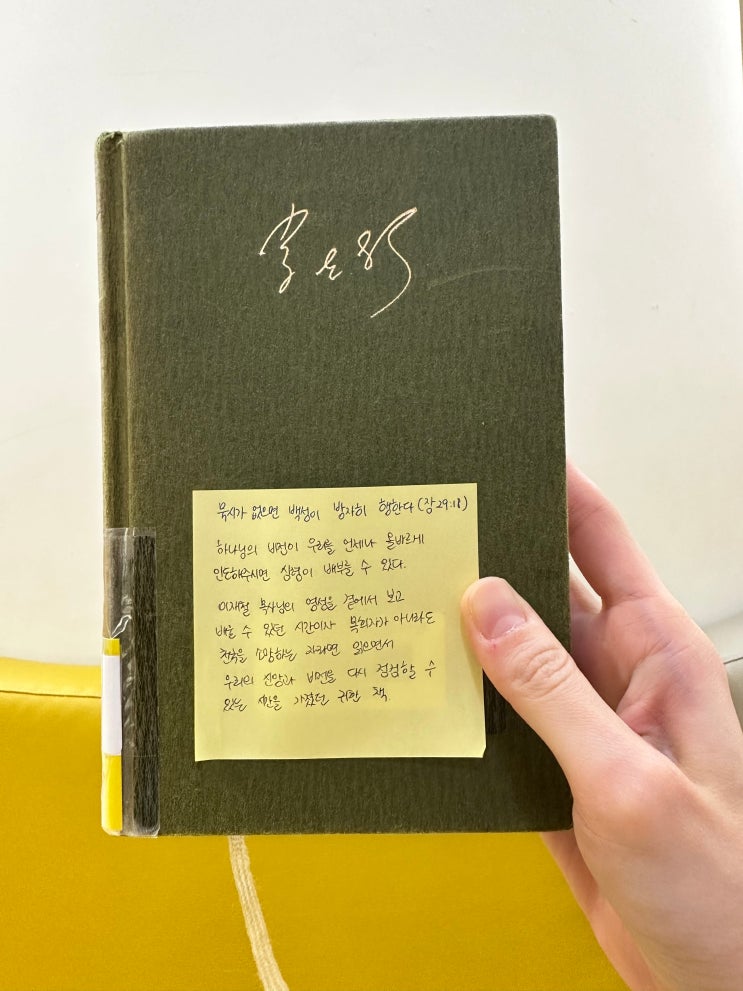 묵시가 없으면 백성이 방자히 행한다 (잠29:18)
하나님의 비전이 우리를 언제나 올바르게
인도해주시면 심령이 배부를 수 있다.
이재철 목사님의 영성을 곁에서 보고
배울 수 있던 시간이자 목회자가 아니라도
천국을 소망하는 자라면 읽으면서
우리의 신앙과 비전을 다시 점검할 수
있는 시간을 가졌던 귀한 책.